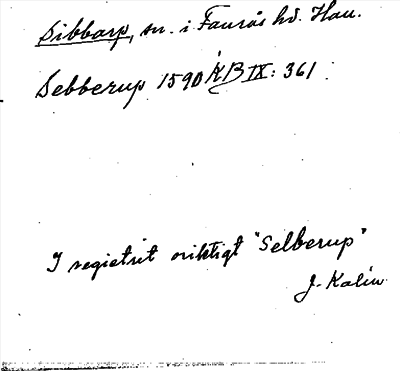 Sibbarp, sn. i Faurås hd. Hall.
Sebberup 1590 KB IX: 361
I registrit oriktigt "Selberup"
J. Kalén